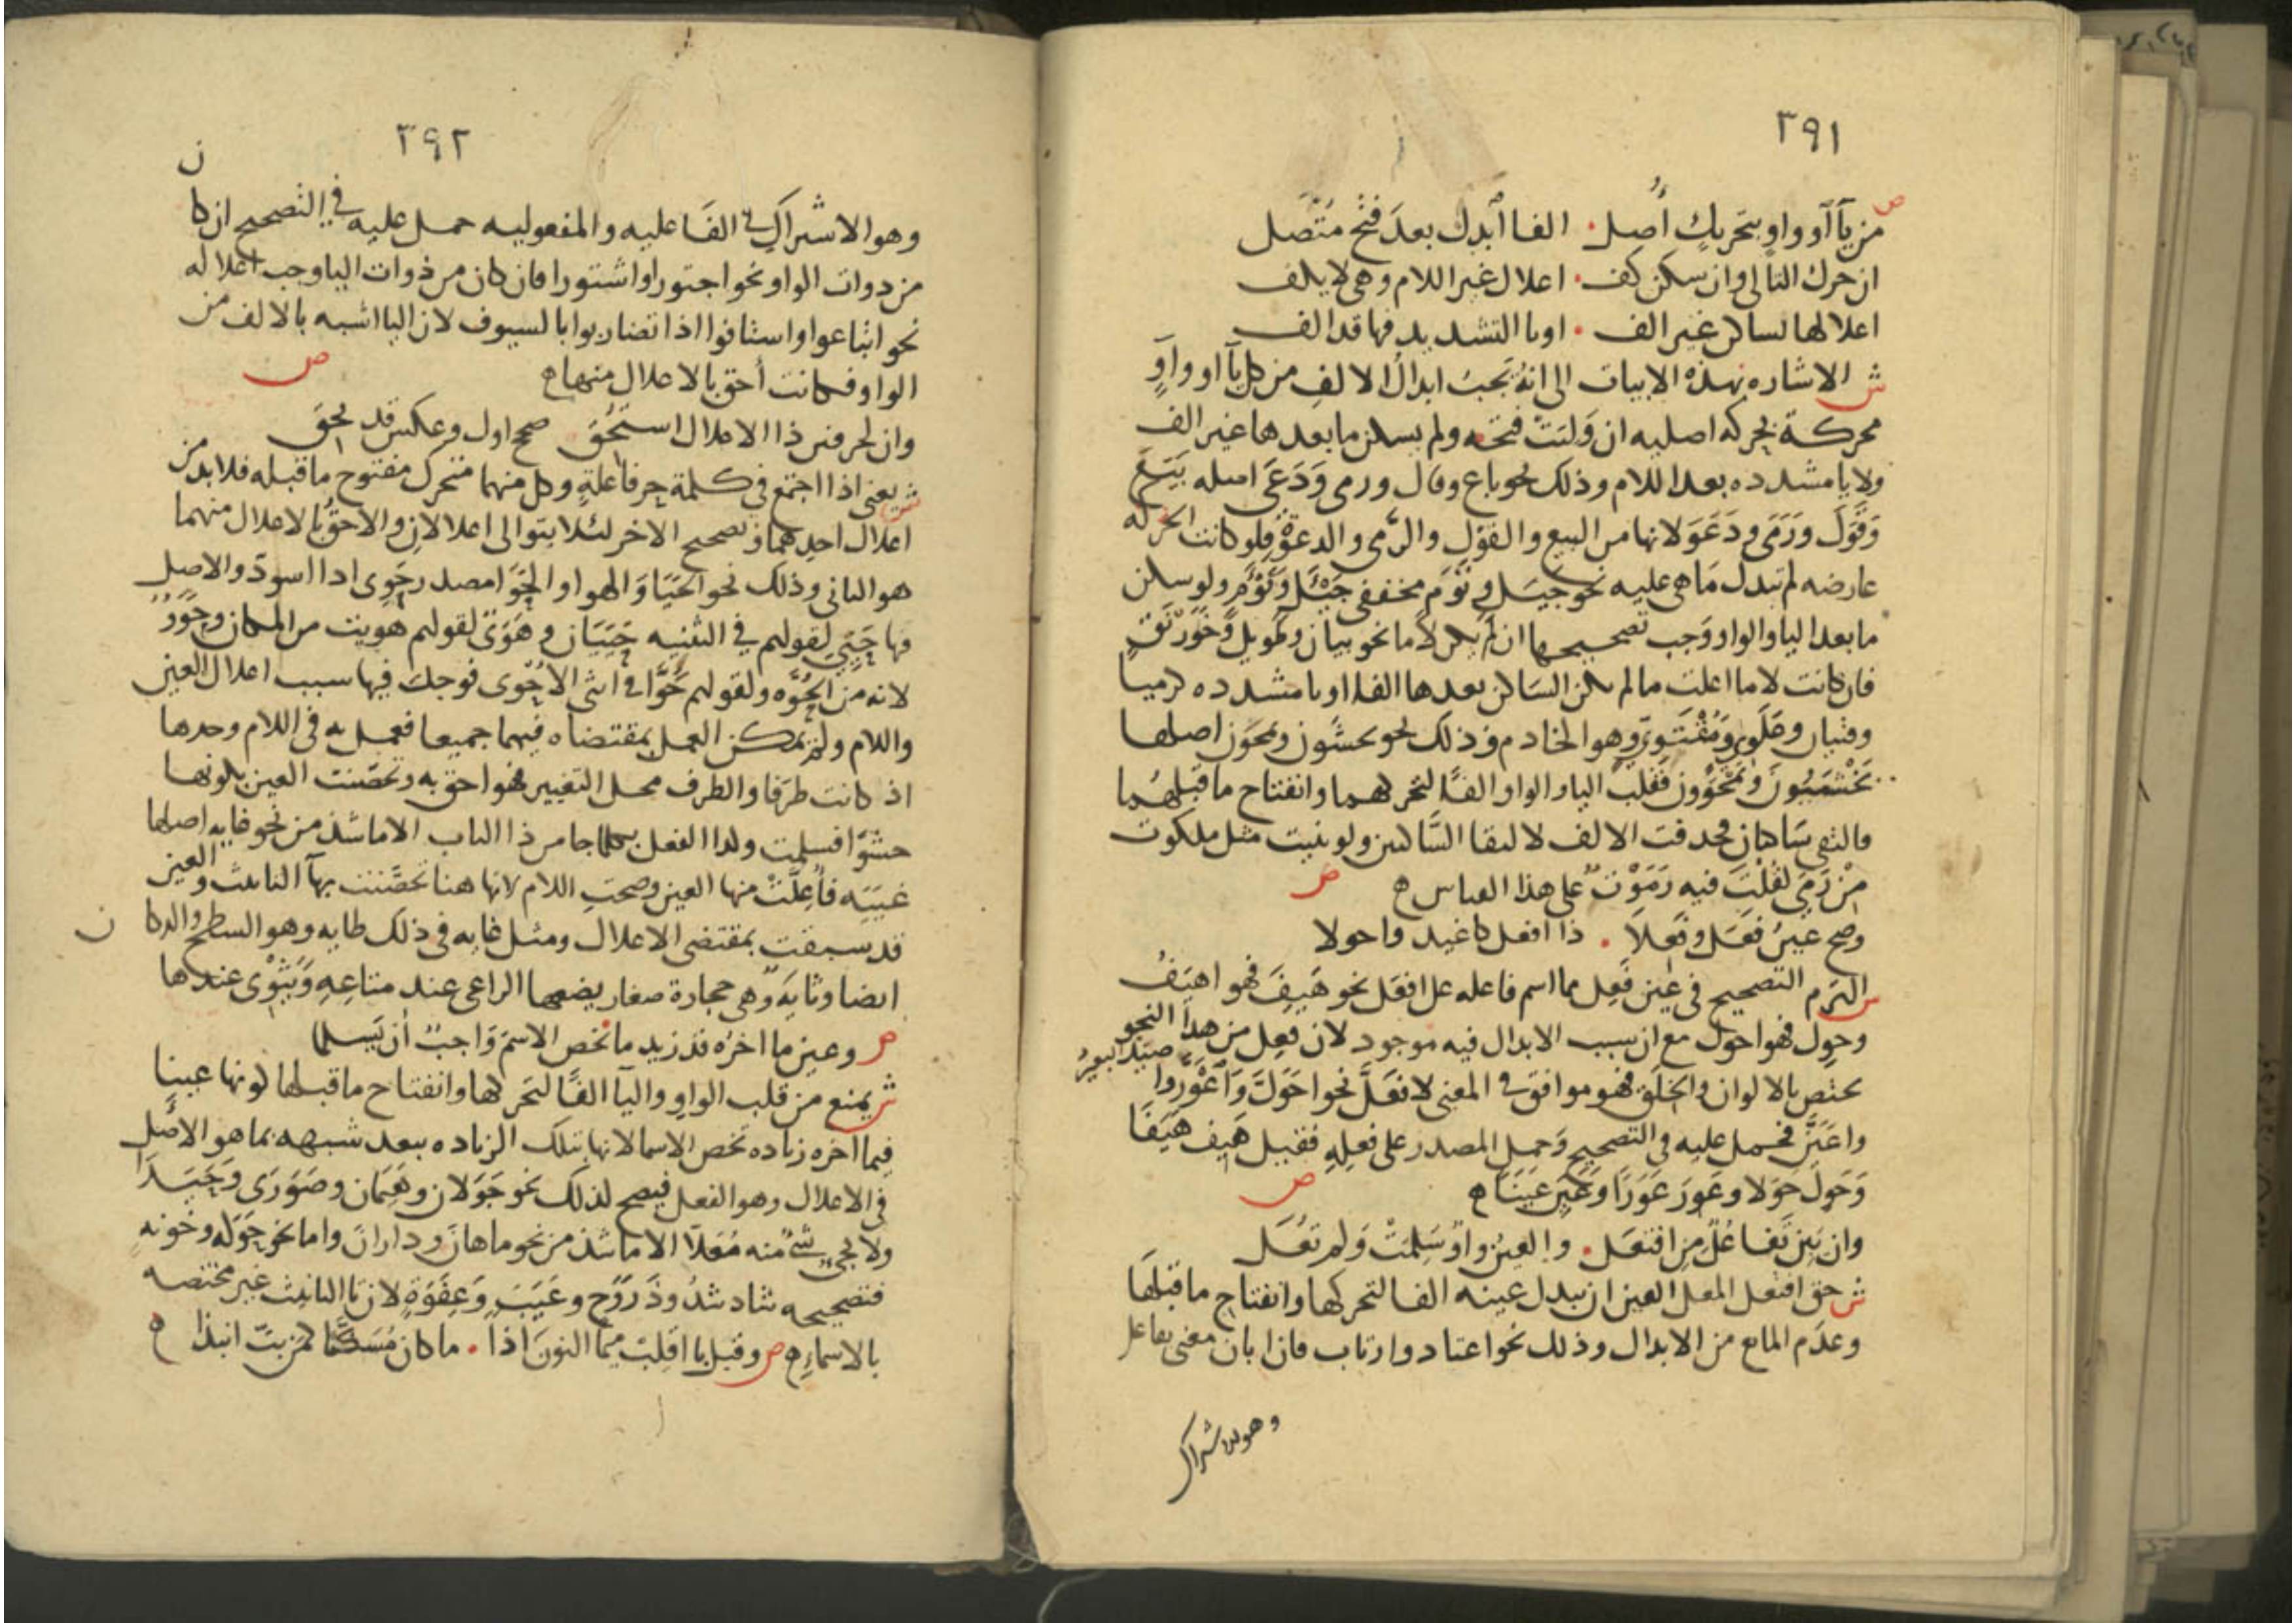 ٣٩١
ص
من يآ أو واو بتحريك أصل . الفا ابدل بعد فتح متصل
ان حرك التالى وان سكن كف . اعلال غير اللام وهى لا يكف
اعلالها بساكن غير الف . اويا التشديد فيها قد الف
ش الاشاره بهذه الابيات الى انه تجب ابدال الالف من كل يآ او واو
محركة بحركه اصليه ان وليت فتحه ولم يسكن ما بعدها غير الف
ولا يا مشدده بعد اللام وذلك نحو باع وقال ورمى ودعى اصله بيع
وقول ورمى ودعو لانها من البيع والقول والرمى والدعوة فلو كانت الحركه
عارضه لم تبدل ما هى عليه نحو جيل وتوم مخففى جيئل وتوءم ولو سكن
ما بعد اليا والواو وجب تصحيحها ان لم يكن لاما نحو بيان وطويل وخورنق
فان كانت لاما اعلت ما لم يكن الساكن بعدها الفا او يا مشدده كرميا
وفتيان وعلوى ومقتوى وهو الخادم وذلك نحو يخشون ويمحون اصلها
يخشيون ويمحوون فقلبت اليا والواو الفًا لتحركهما وانفتاح ما قبلهما
والتقى ساكنان فحدفت الالف لالتقا الساكنين ولو بنيت مثل ملكوت
من رمى لقلت فيه رموت على هذا القياس ه ص
وصح عين فعل وفعلا . ذا افعل كاغيد واحولا
ش التزم التصحيح فى عين فعل مما اسم فاعله على افعل نحو هيف فهو اهيف
وحول فهو احول مع ان سبب الابدال فيه موجود لان فعل من هذا النحو
يختص بالالوان والخلق فهو موافق فى المعنى لافعل نحو احول واعور
واعين فحمل عليه فى التصحيح وحمل المصدر على فعله فقيل هيف هيفًا
وحول حولا وعور عورا وعين عينا ه ص
وان يبن تفاعل من افتعل . والعين واو سلمت ولم تعل
ش حق افتعل المعل العين ان تبدل عينه الفا لتحركها وانفتاح ما قبلها
وعدم المانع من الابدال وذلك نحو اعتاد وارتاب فان ابان معنى تفاعل
وهو الاشتراك
٣٩٢
وهو الاشتراك فى الفاعليه والمفعوليه حمل عليه فى التصحيح ان كان
من دوات الواو نحو اجتوروا واشتوروا فان كان من ذوات اليا وجب اعلاله
نحو ابتاعوا واستافوا اذا تضاربوا بالسيوف لان اليا اشبه بالالف من
الواو فكانت أحق بالاعلال منها ه ص
وان لحرفين ذا الاعلال استحق . صحح اول وعكس قد يحق
ش يعنى اذا اجتمع فى كلمة حرفا علة وكل منهما متحرك مفتوح ما قبله فلا بد من
اعلال احدهما وتصحيح الاخر لئلا يتوالى اعلالان والاحق بالاعلال منهما
هو الثانى وذلك نحو الحيا والهوا والحوا مصدر حوى ادا اسود والاصل
فيها حيى لقولهم فى التثنيه حييان وهوى لقولهم هويت من المكان وحوو
لانه من الحوه ولقولهم حوا فى انثى الاحوى فوجد فيها سبب اعلال العين
واللام ولم يمكن العمل بمقتضاه فيهما جميعا فعمل به فى اللام وحدها
اذ كانت طرفا والطرف محل التغيير فهو احق به وتحصنت العين بكونها
حشوا فسلمت ولذا الفعل بكلما جا من ذا الباب الا ما شذ من نحو غايه اصلها
غييه فأعلت منها العين وصحت اللام لانها هنا تحصنت بهآ التانيث والعين
قد سبقت بمقتضى الاعلال ومثل غايه فى ذلك طايه وهو السطح والدكان
ايضا وثايه وهى حجارة صغار يضعها الراعى عند متاعه ويثوى عندها
ص وعين ما اخره قد زيد ما يخص الاسم واجب أن يسلما
ش يمنع من قلب الواو واليآ الفًا لتحركها وانفتاح ما قبلها كونها عينا
فيما اخره زياده تخص الاسما لانها بتلك الزياده يبعد شبهه بما هو الأصل
فى الاعلال وهو الفعل فيصح لذلك نحو جولان وهيمان وصورى وحيدا
ولا يجى شى منه معلا الا ما شذ من نحو ماهان وداران واما نحو حوكه وخونه
فتصحيحه شاد شذ وذ روح وغيب وعفوة لان تا التانيث غير مختصه
بالاسماء ه ص وقبل با اقلب ميما النون اذا . ما كان مسكنا كمن بت انبذا ه